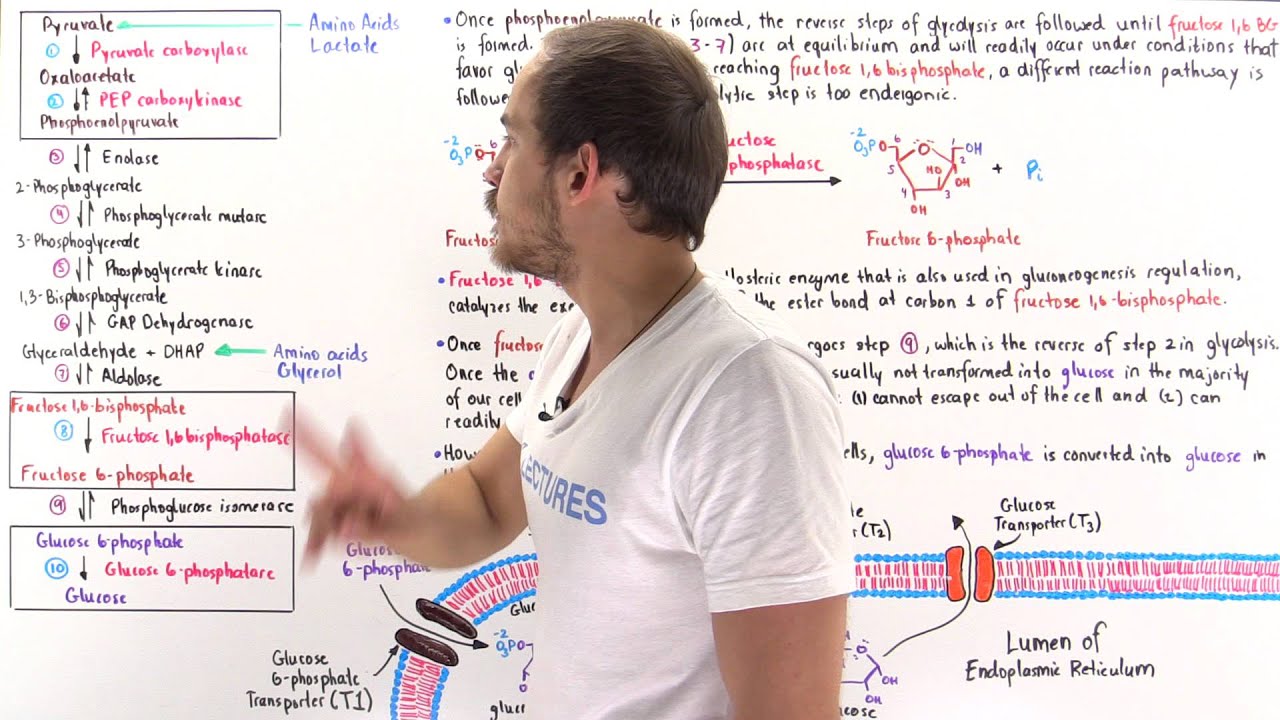 Pyruvate
Amino Acids
Lactate
① Pyruvate carboxylase
Oxaloacetate
② PEP carboxykinase
Phosphoenolpyruvate
③ Enolase
2-Phosphoglycerate
④ Phosphoglycerate mutase
3-Phosphoglycerate
⑤ Phosphoglycerate kinase
1,3-Bisphosphoglycerate
⑥ GAP Dehydrogenase
Glyceraldehyde + DHAP
Amino acids
Glycerol
⑦ Aldolase
Fructose 1,6-bisphosphate
⑧ Fructose 1,6 bisphosphatase
Fructose 6-phosphate
⑨ Phosphoglucose isomerase
Glucose 6-phosphate
⑩ Glucose 6-phosphatase
Glucose
• Once phosphoenolpyruvate is formed, the reverse steps of glycolysis are followed until fructose 1,6 BG
is formed. 3-7) are at equilibrium and will readily occur under conditions that
favor reaching fructose 1,6 bisphosphate, a different reaction pathway is
step is too endergonic.
-2
O3PO 6
-2
O3PO 6 O 1 OH
5 HO 2 OH
4 3
OH
+ Pi
Fructose 6-phosphate
• Fructose 1,6 enzyme that is also used in gluconeogenesis regulation,
catalyzes the the ester bond at carbon 1 of fructose 1,6-bisphosphate.
• Once step ⑨, which is the reverse of step 2 in glycolysis.
Once the not transformed into glucose in the majority
of our (1) cannot escape out of the cell and (2) can
readily
• glucose 6-phosphate is converted into glucose in
LECTURES
Glucose
6-phosphate
(T2)
Glucose
Transporter (T3)
-2
O3PO
Glucose
6-phosphate
Transporter (T1)
OH
OH
Lumen of
Endoplasmic Reticulum